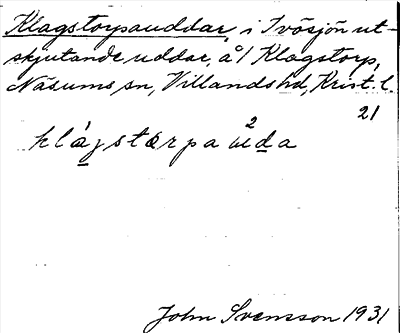 Klagstorpauddar, i Ivösjön ut-
skjutande uddar, å 1 Klagstorp,
Näsums sn, Villands hd, Krist. l.
21
klágstɷrpa ²uda
John Svensson 1931